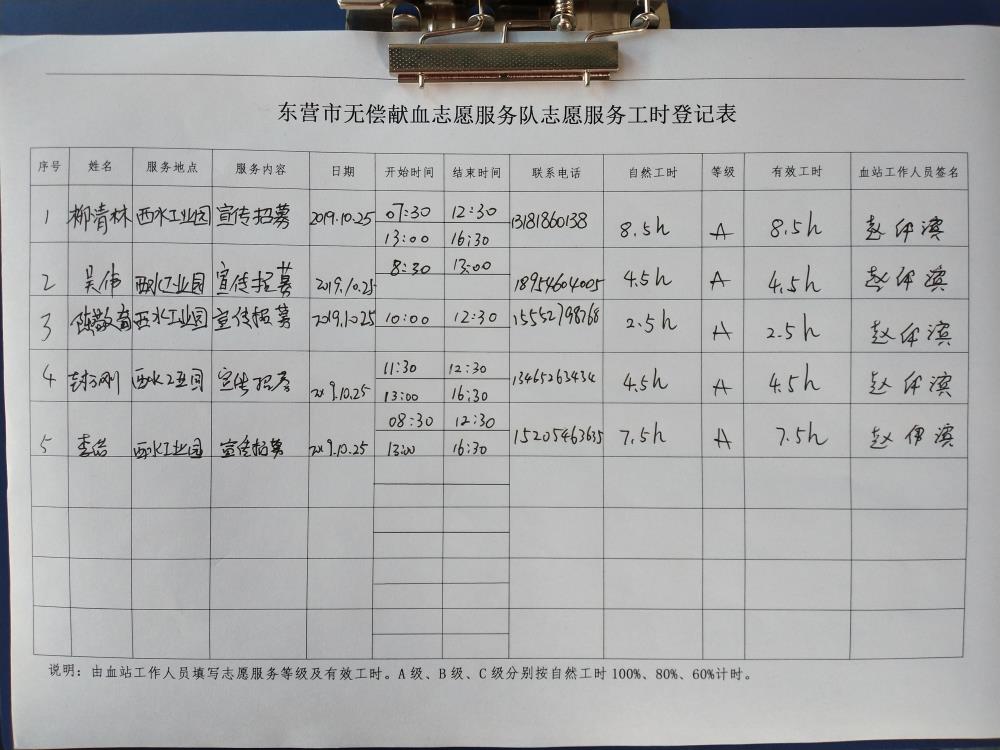 东营市无偿献血志愿服务队志愿服务工时登记表
序号 姓名 服务地点 服务内容 日期 开始时间 结束时间 联系电话 自然工时 等级 有效工时 血站工作人员签名
1 柳清林 西水工业园 宣传招募 2019.10.25 07:30 12:30 13181860138 8.5h A 8.5h 赵伊滨
13:00 16:30
2 吴伟 西水工业园 宣传招募 2019.10.25 8:30 13:00 18954604005 4.5h A 4.5h 赵伊滨
3 陈敬斋 西水工业园 宣传招募 2019.10.25 10:00 12:30 15552798768 2.5h A 2.5h 赵伊滨
4 西水工业园 宣传招募 2019.10.25 11:30 12:30 13465263434 4.5h A 4.5h 赵伊滨
13:00 16:30
5 李浩 西水工业园 宣传招募 2019.10.25 08:30 12:30 15205463635 7.5h A 7.5h 赵伊滨
13:00 16:30
说明：由血站工作人员填写志愿服务等级及有效工时。A级、B级、C级分别按自然工时100%、80%、60%计时。